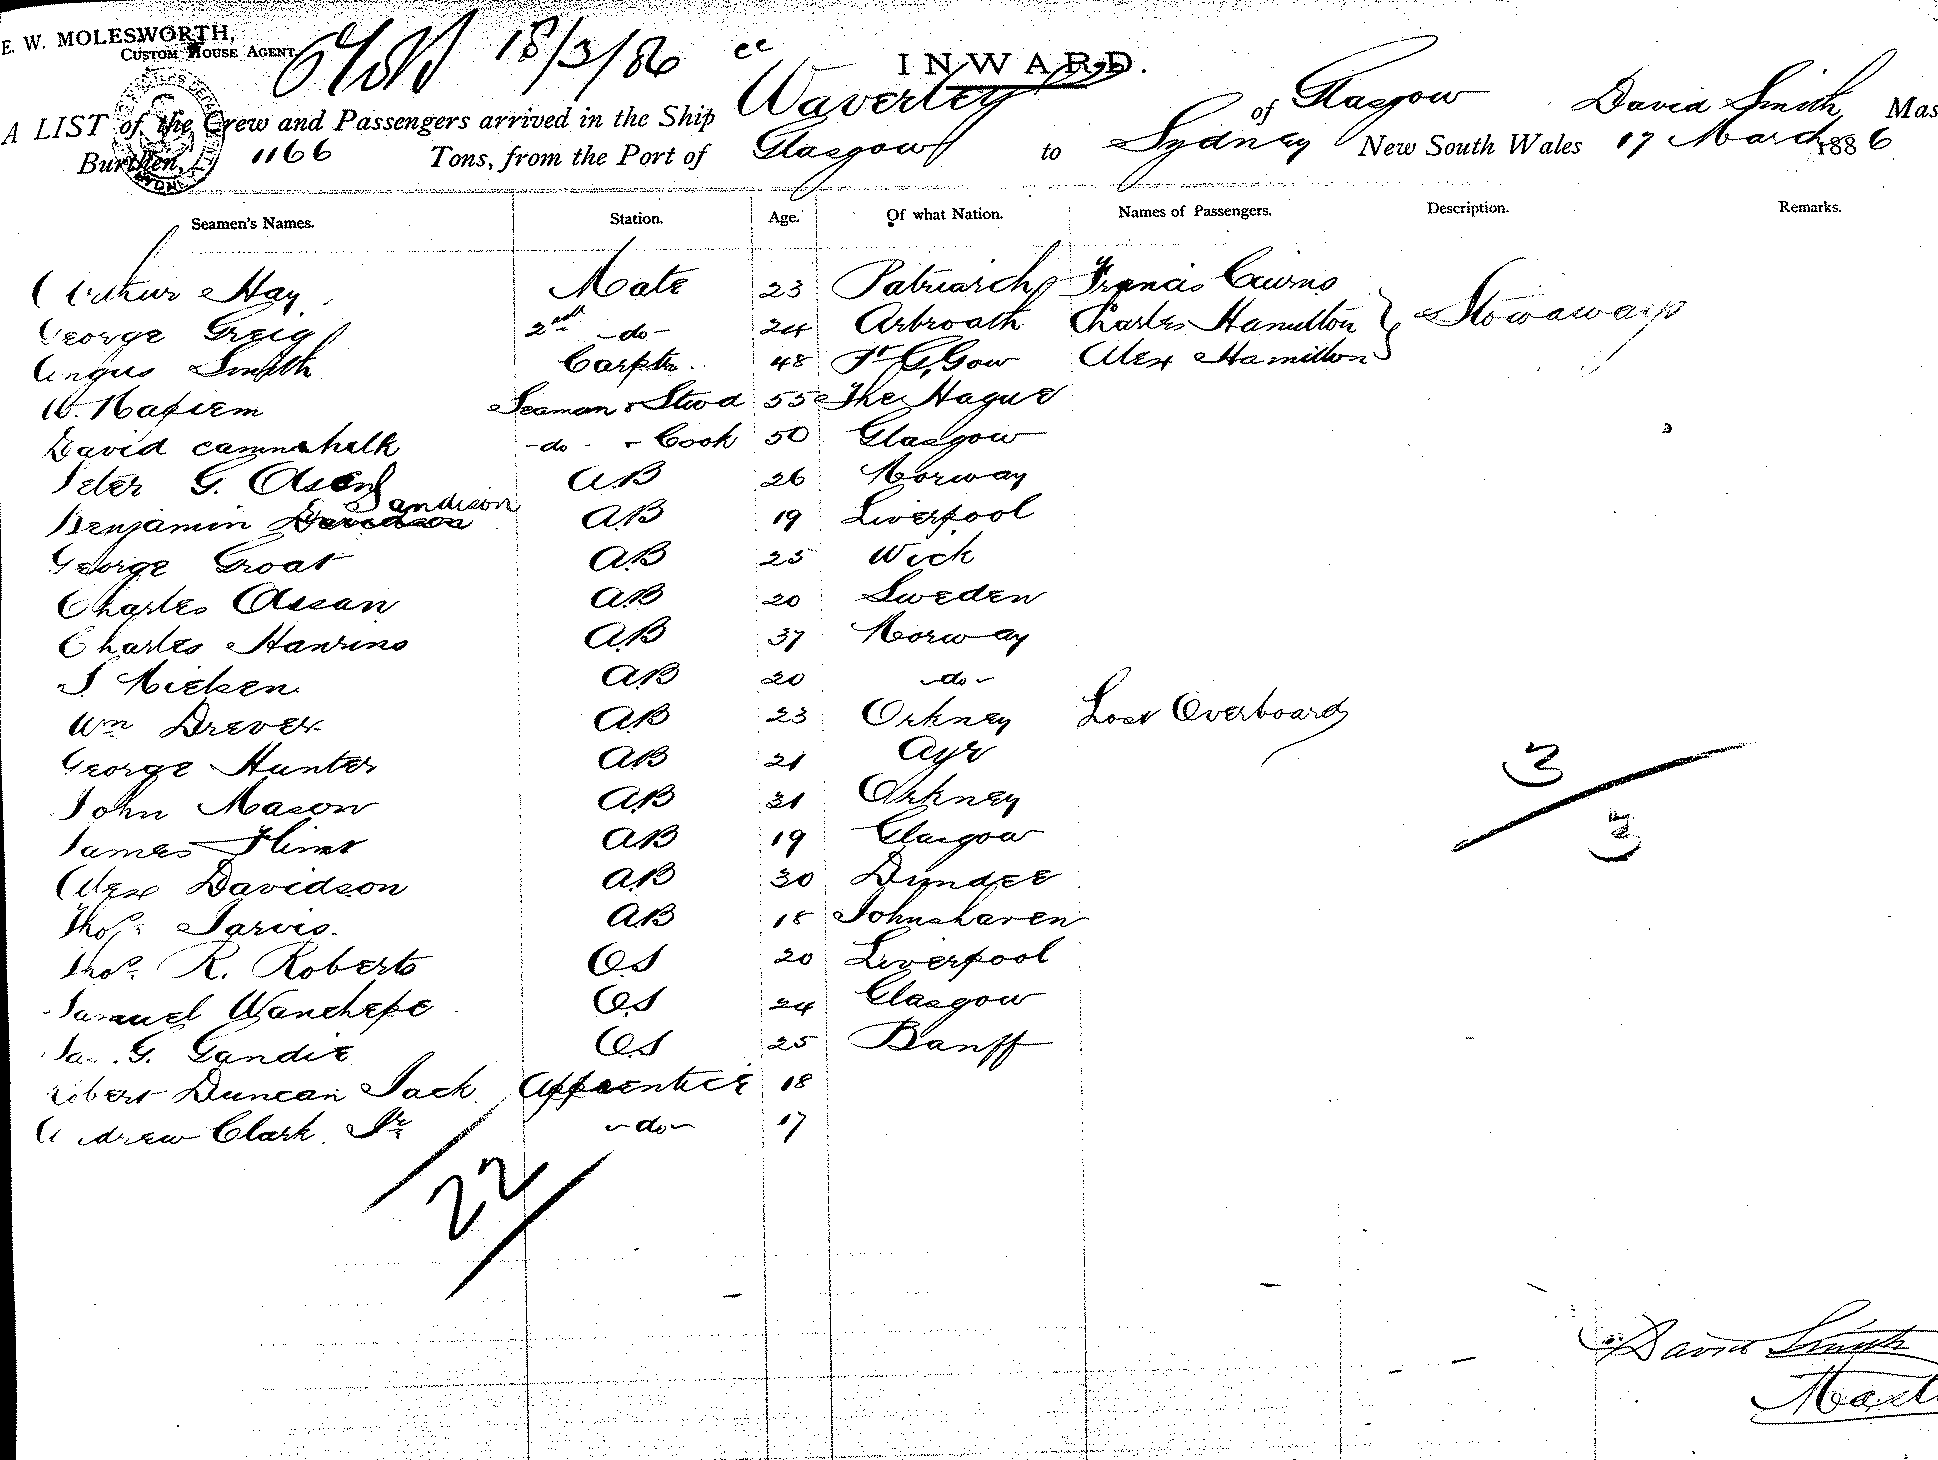 E. W. MOLESWORTH,
CUSTOM HOUSE AGENT
18/3/86
INWARD.
A LIST of the Crew and Passengers arrived in the Ship Waverley of Glasgow David Smith Mas
Burthen, 1166 Tons, from the Port of Glasgow to Sydney New South Wales 17 March 1886
Seamen's Names. Station. Age. Of what Nation. Names of Passengers. Description. Remarks.
Arthur Hay Mate 23 Patriarch Francis Cairns
George Greig 2nd -do- 24 Arbroath Charles Hamilton Stowaways
Angus Smith Carptr. 48 Pt G,Gow Alex Hamilton
W. Seaman & Stwd 55 The Hague
David -do- - Cook 50 Glasgow
Peter G. Olsen AB 26 Norway
Sandison
Benjamin Davidson AB 19 Liverpool
George Groat AB 25 Wick
Charles AB 20 Sweden
Charles AB 37 Norway
Nielsen AB 20 -do-
Wm Drever AB 23 Orkney Lost Overboard
George Hunter AB 21 Ayr
John Mason AB 31 Orkney
James Flint AB 19 Glasgow
Alex Davidson AB 30 Dundee
Thos. Jarvis. AB 18 Johnshaven
Thos. R. Roberts OS 20 Liverpool
Samuel OS 24 Glasgow
Ja. G. Gandie OS 25 Banff
Robert Duncan Jack Apprentice 18
Andrew Clark Jr -do- 17
3/3
22
David Smith
Mast